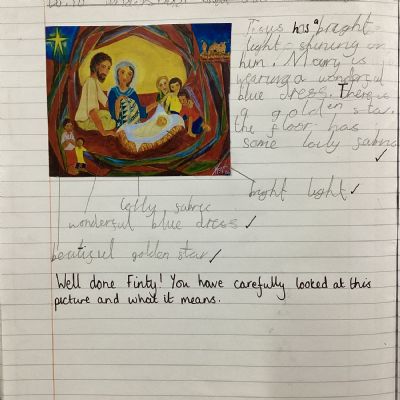 Jesus has a bright
light shining on
him. Mary is
wearing a wonderful
blue dress. There is
a golden star
the floor has
some lovly fabric
bright light
lovly fabric
wonderful blue dress
beautiful golden star
Well done Finty! You have carefully looked at this
picture and what it means.